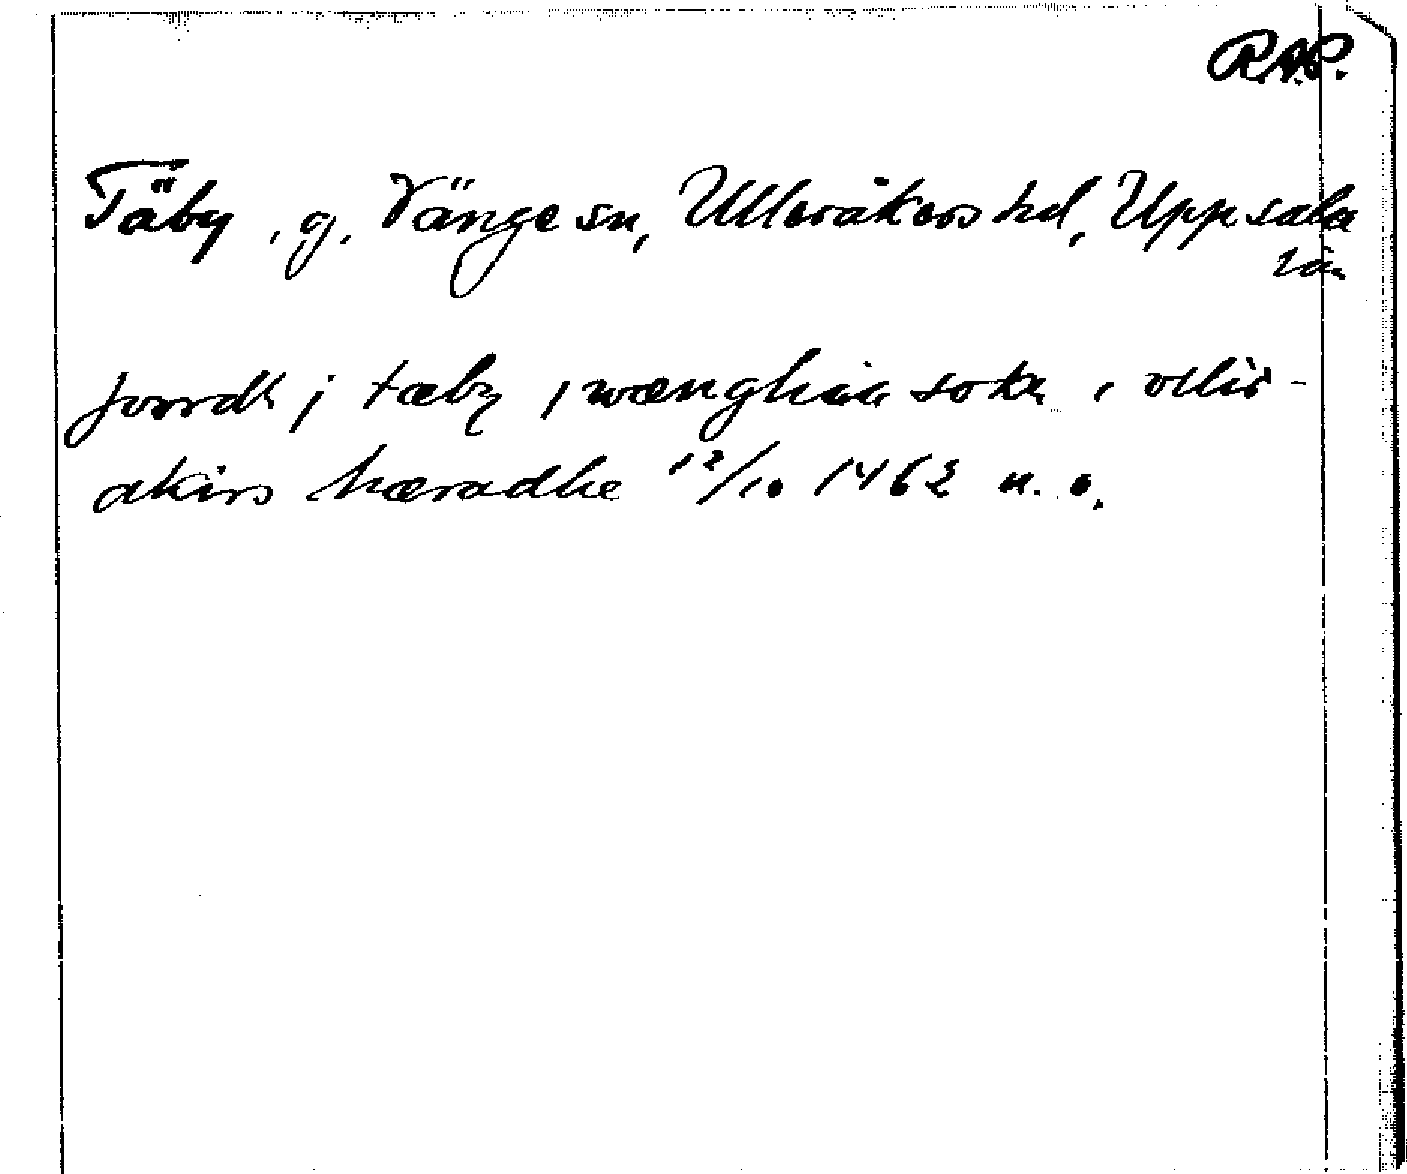 R.A.P.
Täby, g. Vänge sn, Ulleråkers hd, Uppsala
län
jordh j tæby j wænghia sokn i vllir-
akirs hæradhe 12/10 1462 u. o.